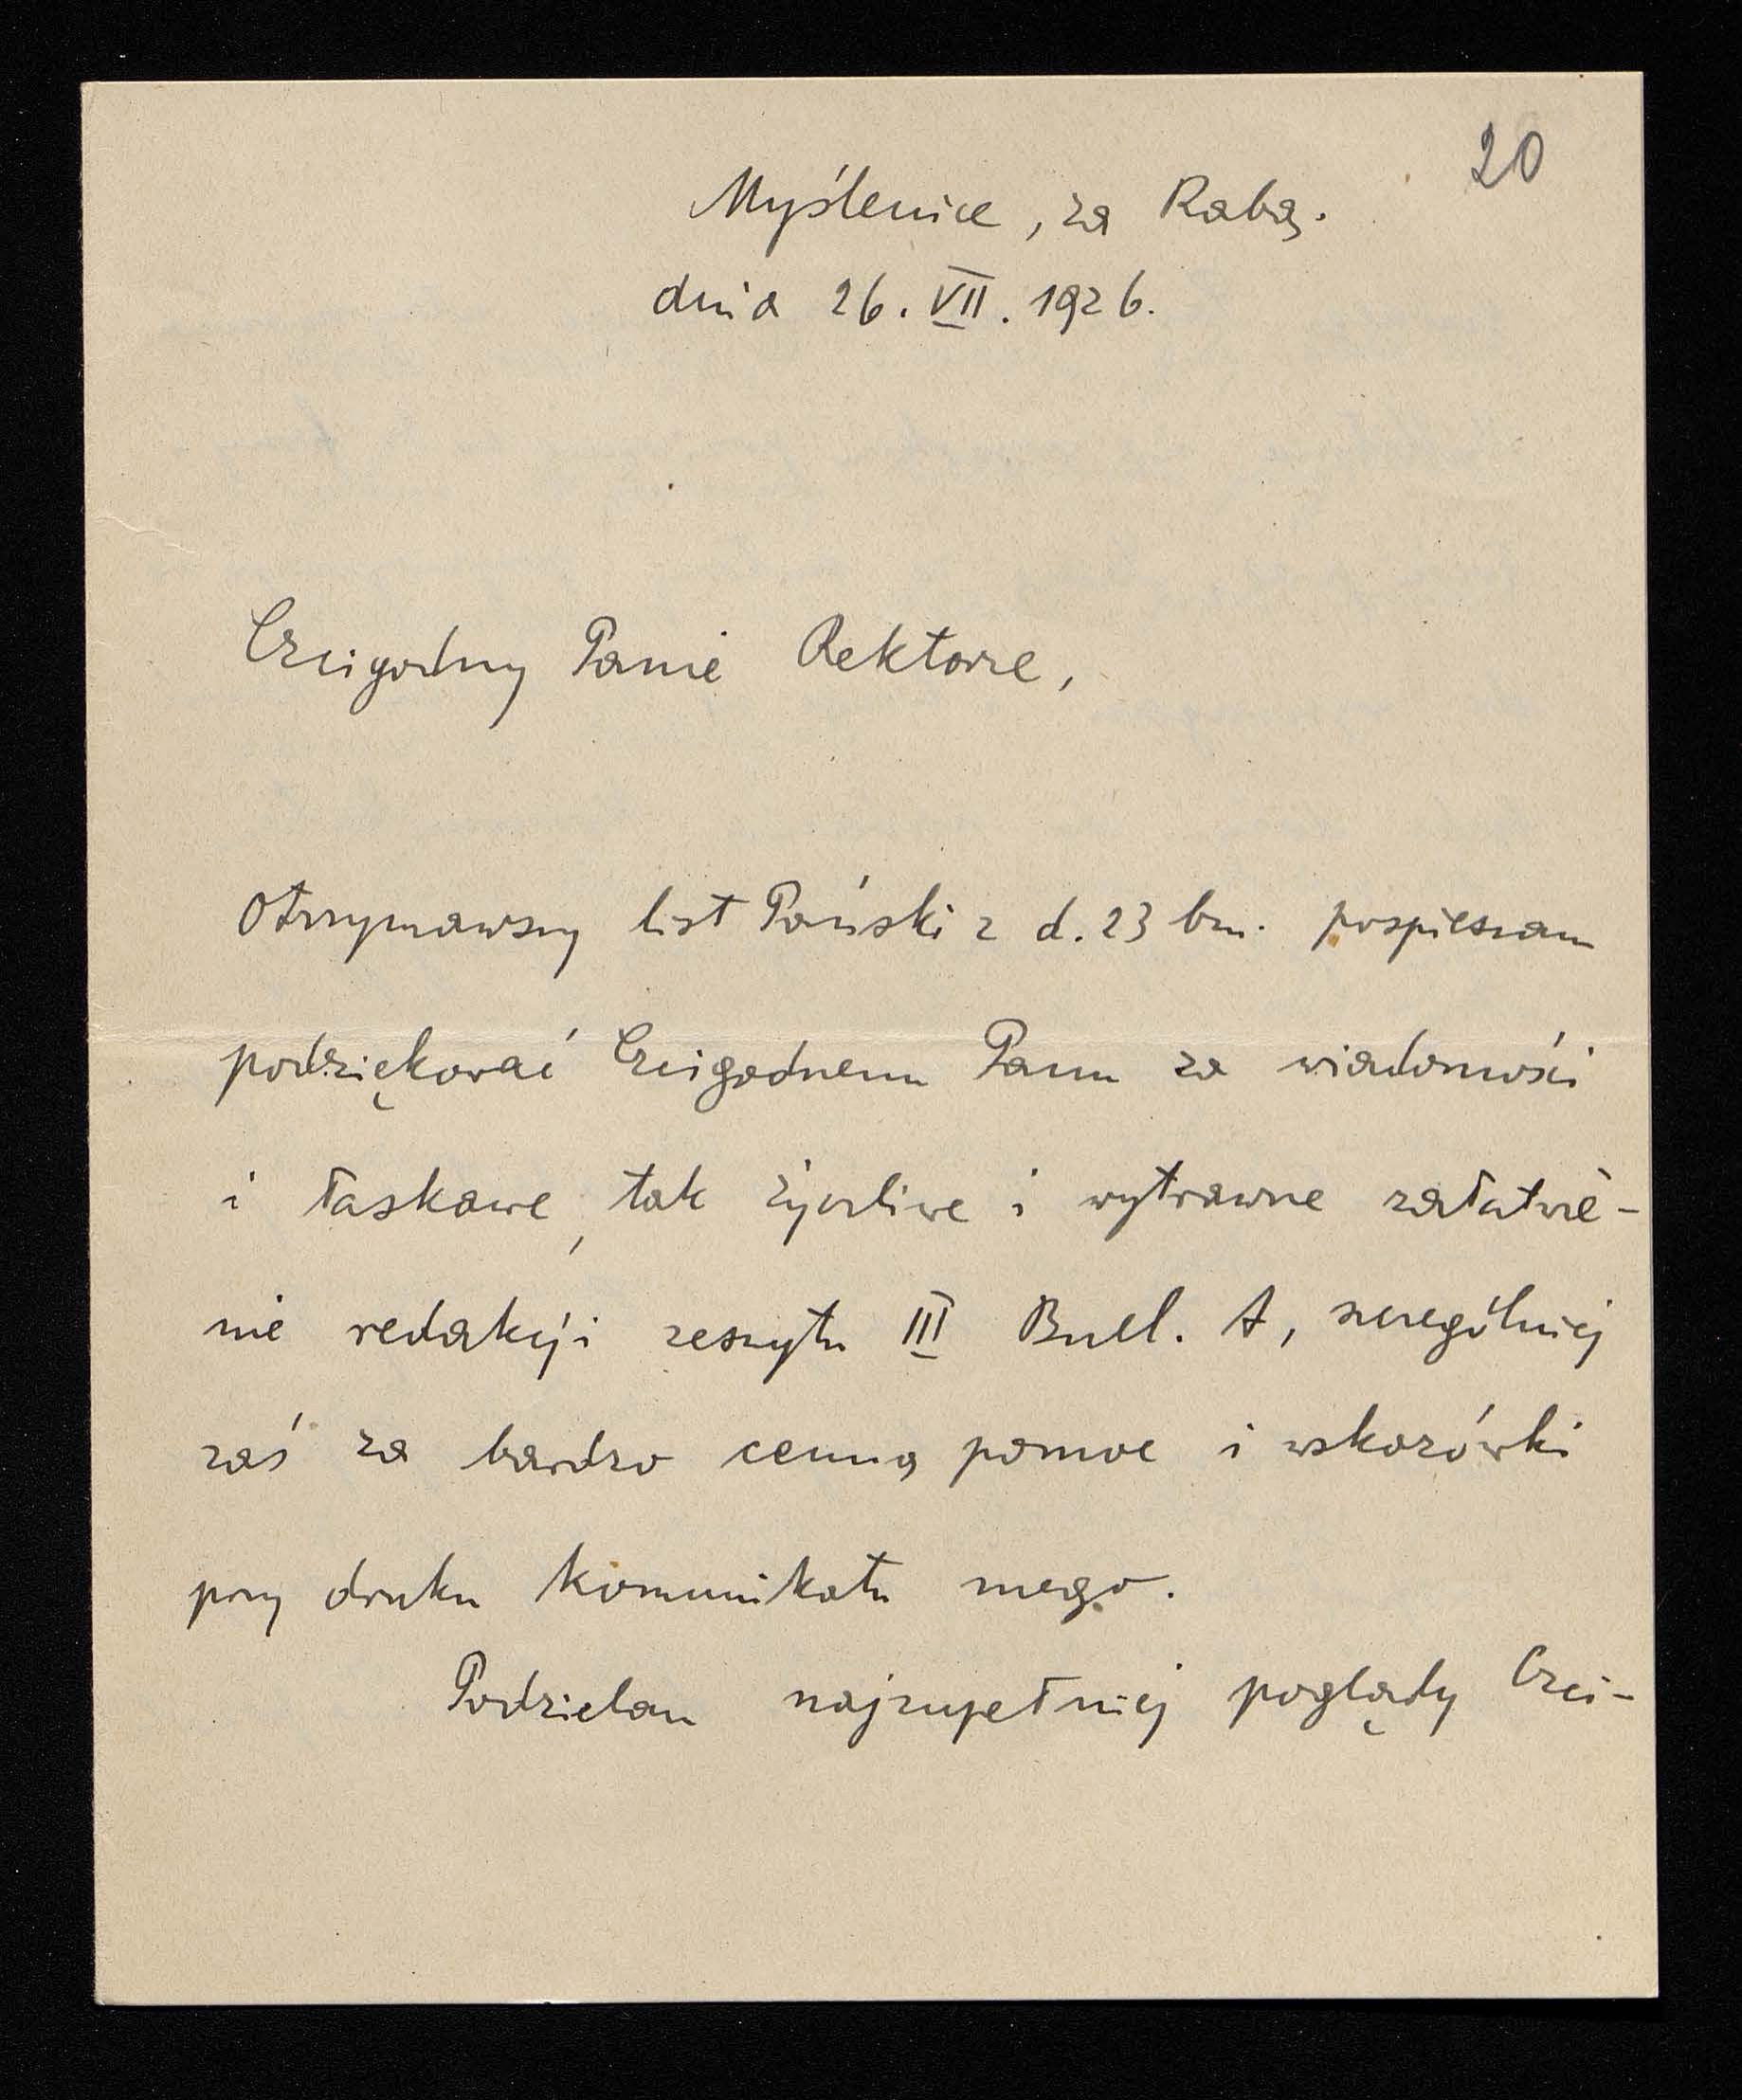 20
Myślenice, za Rabą.
dnia 26. VII. 1926.
Czcigodny Panie Rektorze,
Otrzymawszy list Pański z d. 23 bm. pospieszam
podziękować Czcigodnemu Panu za wiadomości
i łaskawe, tak życzliwe i wytrawne załatwie-
nie redakcji zeszytu III Bull. A, szczególniej
zaś za bardzo cenną pomoc i wskazówki
przy druku komunikatu mego.
Podzielam najzupełniej poglądy Czci-